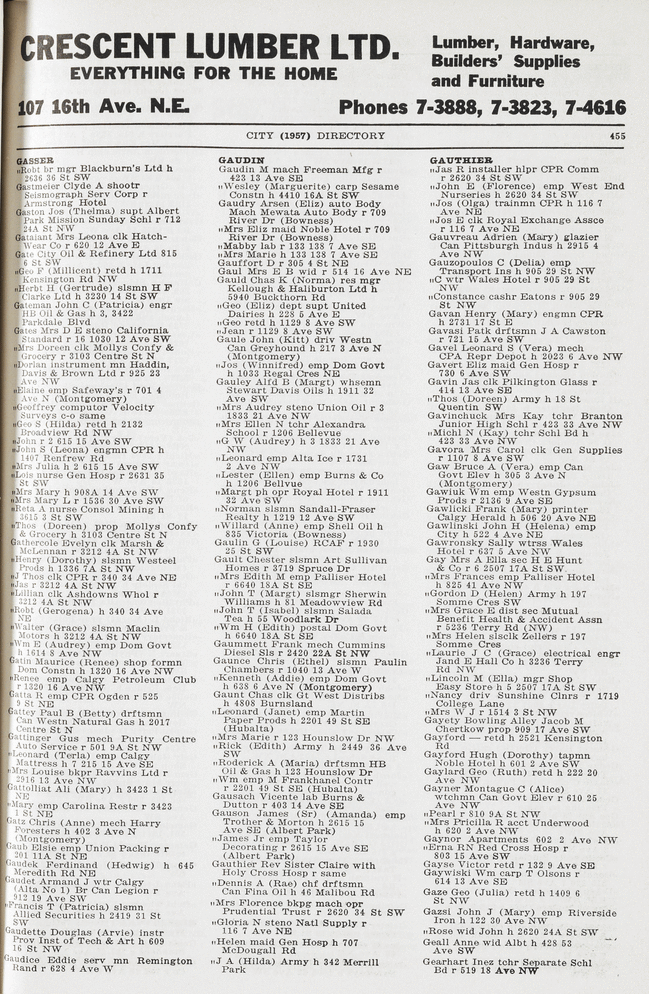 CRESCENT LUMBER LTD.
EVERYTHING FOR THE HOME
Lumber, Hardware,
Builders' Supplies
and Furniture
107 16th Ave. N.E.
Phones 7-3888, 7-3823, 7-4616
CITY (1957) DIRECTORY
455
GASSER
"Robt br mgr Blackburn's Ltd h
2636 36 St SW
Gastmeier Clyde A shootr
Seismograph Serv Corp r
Armstrong Hotel
Gaston Jos (Thelma) supt Albert
Park Mission Sunday Schl r 712
24A St NW
Gataiant Mrs Leona clk Hatch-
Wear Co r 620 12 Ave E
Gate City Oil & Refinery Ltd 815
6 St SW
"Geo F (Millicent) retd h 1711
Kensington Rd NW
"Herbt H (Gertrude) slsmn H F
Clarke Ltd h 3230 14 St SW
Gateman John C (Patricia) engr
HB Oil & Gas h 3, 3422
Parkdale Blvd
Gates Mrs D E steno California
Standard r 16 1030 12 Ave SW
"Mrs Doreen clk Mollys Confy &
Grocery r 3103 Centre St N
"Dorian instrument mn Haddin,
Davis & Brown Ltd r 925 23
Ave NW
"Elaine emp Safeway's r 701 4
Ave N (Montgomery)
"Geoffrey computor Velocity
Surveys c-o same
"Geo S (Hilda) retd h 2132
Broadview Rd NW
"John r 2 615 15 Ave SW
"John S (Leona) engmn CPR h
1407 Renfrew Rd
"Mrs Julia h 2 615 15 Ave SW
"Lois nurse Gen Hosp r 2631 35
St SW
"Mrs Mary h 908A 14 Ave SW
"Mrs Mary L r 1536 30 Ave SW
"Reta A nurse Consol Mining h
1615 3 St SW
"Thos (Doreen) prop Mollys Confy
& Grocery h 3103 Centre St N
Gathercole Evelyn clk Marsh &
McLennan r 3212 4A St NW
"Henry (Dorothy) slsmn Westeel
Prods h 1336 7A St NW
"J Thos clk CPR r 340 34 Ave NE
"Jas r 3212 4A St NW
"Lillian clk Ashdowns Whol r
3212 4A St NW
"Robt (Gerogena) h 340 34 Ave
NE
"Walter (Grace) slsmn Maclin
Motors h 3212 4A St NW
"Wm E (Audrey) emp Dom Govt
h 1614 8 Ave NW
Gatin Maurice (Renee) shop formn
Dom Constn h 1320 16 Ave NW
"Renee emp Calgy Petroleum Club
r 1320 16 Ave NW
Gatta R emp CPR Ogden r 525
9 St NE
Gattey Paul B (Betty) drftsmn
Can Westn Natural Gas h 2017
Centre St N
Gattinger Gus mech Purity Centre
Auto Service r 501 9A St NW
"Leonard (Terla) emp Calgy
Mattress h 7 215 15 Ave SE
"Mrs Louise bkpr Ravvins Ltd r
2916 13 Ave NW
Gattolliat Ali (Mary) h 3423 1 St
NE
"Mary emp Carolina Restr r 3423
1 St NE
Gatz Chris (Anne) mech Harry
Foresters h 402 3 Ave N
(Montgomery)
Gaub Elsie emp Union Packing r
201 11A St NE
Gaudek Ferdinand (Hedwig) h 645
Meredith Rd NE
Gaudet Armand J wtr Calgy
(Alta No 1) Br Can Legion r
912 19 Ave SW
"Francis T (Patricia) slsmn
Allied Securities h 2419 31 St
SW
Gaudette Douglas (Arvie) instr
Prov Inst of Tech & Art h 609
16 St NW
Gaudice Eddie serv mn Remington
Rand r 628 4 Ave W
GAUDIN
Gaudin M mach Freeman Mfg r
423 13 Ave SE
"Wesley (Marguerite) carp Sesame
Constn h 4410 16A St SW
Gaudry Arsen (Eliz) auto Body
Mach Mewata Auto Body r 709
River Dr (Bowness)
"Mrs Eliz maid Noble Hotel r 709
River Dr (Bowness)
"Mabby lab r 133 138 7 Ave SE
"Mrs Marie h 133 138 7 Ave SE
Gauffort D r 305 4 St NE
Gaul Mrs E B wid r 514 16 Ave NE
Gauld Chas K (Norma) res mgr
Kellough & Haliburton Ltd h
5940 Buckthorn Rd
"Geo (Eliz) dept supt United
Dairies h 228 5 Ave E
"Geo retd h 1129 8 Ave SW
"Jean r 1129 8 Ave SW
Gaule John (Kitt) driv Westn
Can Greyhound h 217 3 Ave N
(Montgomery)
"Jos (Winnifred) emp Dom Govt
h 1033 Regal Cres NE
Gauley Alfd B (Margt) whsemn
Stewart Davis Oils h 1911 32
Ave SW
"Mrs Audrey steno Union Oil r 3
1833 21 Ave NW
"Mrs Ellen N tchr Alexandra
School r 1206 Bellevue
"G W (Audrey) h 3 1833 21 Ave
NW
"Leonard emp Alta Ice r 1731
2 Ave NW
"Lester (Ellen) emp Burns & Co
h 1206 Bellvue
"Margt ph opr Royal Hotel r 1911
32 Ave SW
"Norman slsmn Sandall-Fraser
Realty h 1219 12 Ave SW
"Willard (Anne) emp Shell Oil h
835 Victoria (Bowness)
Gaulin G (Louise) RCAF r 1930
25 St SW
Gault Chester slsmn Art Sullivan
Homes r 3719 Spruce Dr
"Mrs Edith M emp Palliser Hotel
r 6640 18A St SE
"John T (Margt) slsmgr Sherwin
Williams h 81 Meadowview Rd
"John T (Isabel) slsmn Salada
Tea h 55 Woodlark Dr
"Wm H (Edith) postal Dom Govt
h 6640 18A St SE
Gaummett Frank mech Cummins
Diesel Sls r 2420 22A St NW
Gaunce Chris (Ethel) slsmn Paulin
Chambers r 1040 13 Ave W
"Kenneth (Addie) emp Dom Govt
h 638 6 Ave N (Montgomery)
Gaunt Chas clk Gt West Distribs
h 4808 Burnsland
"Leonard (Janet) emp Martin
Paper Prods h 2201 49 St SE
(Hubalta)
"Mrs Marie r 123 Hounslow Dr NW
"Rick (Edith) Army h 2449 36 Ave
SW
"Roderick A (Maria) drftsmn HB
Oil & Gas h 123 Hounslow Dr
"Wm emp M Frankhanel Contr
r 2201 49 St SE (Hubalta)
Gausach Vicente lab Burns &
Dutton r 403 14 Ave SE
Gauson James (Sr) (Amanda) emp
Trother & Morton h 2615 15
Ave SE (Albert Park)
"James Jr emp Taylor
Decorating r 2615 15 Ave SE
(Albert Park)
Gauthier Rev Sister Claire with
Holy Cross Hosp r same
"Dennis A (Rae) chf drftsmn
Can Fina Oil h 46 Malibou Rd
"Mrs Florence bkpg mach opr
Prudential Trust r 2620 34 St SW
"Gloria N steno Natl Supply r
116 7 Ave NE
"Helen maid Gen Hosp h 707
McDougall Rd
"J A (Hilda) Army h 342 Merrill
Park
GAUTHIER
"Jas R installer hlpr CPR Comm
r 2620 34 St SW
"John E (Florence) emp West End
Nurseries h 2620 34 St SW
"Jos (Olga) trainmn CPR h 116 7
Ave NE
"Jos E clk Royal Exchange Assce
r 116 7 Ave NE
Gauvreau Adrien (Mary) glazier
Can Pittsburgh Indus h 2915 4
Ave NW
Gauzopoulos C (Delia) emp
Transport Ins h 905 29 St NW
"C wtr Wales Hotel r 905 29 St
NW
"Constance cashr Eatons r 905 29
St NW
Gavan Henry (Mary) engmn CPR
h 2731 17 St E
Gavasi Patk drftsmn J A Cawston
r 721 15 Ave SW
Gavel Leonard S (Vera) mech
CPA Repr Depot h 2023 6 Ave NW
Gavert Eliz maid Gen Hosp r
730 6 Ave SW
Gavin Jas clk Pilkington Glass r
414 13 Ave SE
"Thos (Doreen) Army h 18 St
Quentin SW
Gavinchuck Mrs Kay tchr Branton
Junior High Schl r 423 33 Ave NW
"Michl N (Kay) tchr Schl Bd h
423 33 Ave NW
Gavora Mrs Carol clk Gen Supplies
r 1107 8 Ave SW
Gaw Bruce A (Vera) emp Can
Govt Elev h 305 3 Ave N
(Montgomery)
Gawiuk Wm emp Westn Gypsum
Prods r 2136 9 Ave SE
Gawlicki Frank (Mary) printer
Calgy Herald h 506 20 Ave NE
Gawlinski John H (Helena) emp
City h 522 4 Ave NE
Gawronsky Sally wtrss Wales
Hotel r 637 5 Ave NW
Gay Mrs A Ella sec H E Hunt
& Co r 6 2507 17A St SW
"Mrs Frances emp Palliser Hotel
h 825 41 Ave NW
"Gordon D (Helen) Army h 197
Somme Cres SW
"Mrs Grace E dist sec Mutual
Benefit Health & Accident Assn
r 5236 Terry Rd (NW)
"Mrs Helen slsclk Zellers r 197
Somme Cres
"Laurie J C (Grace) electrical engr
Jand E Hall Co h 3236 Terry
Rd NW
"Lincoln M (Ella) mgr Shop
Easy Store h 5 2507 17A St SW
"Nancy driv Sunshine Clnrs r 1719
College Lane
"Mrs W J r 1514 3 St NW
Gayety Bowling Alley Jacob M
Chertkow prop 909 17 Ave SW
Gayford — retd h 2521 Kensington
Rd
Gayford Hugh (Dorothy) tapmn
Noble Hotel h 601 2 Ave SW
Gaylard Geo (Ruth) retd h 222 20
Ave NW
Gayner Montague C (Alice)
wtchmn Can Govt Elev r 610 25
Ave NW
"Pearl r 810 9A St NW
"Mrs Pricilla R acct Underwood
h 620 2 Ave NW
Gaynor Apartments 602 2 Ave NW
"Erna RN Red Cross Hosp r
803 15 Ave SW
Gayse Victor retd r 132 9 Ave SE
Gaywiski Wm carp T Olsons r
614 13 Ave SE
Gaze Geo (Julia) retd h 1409 6
St NW
Gazsi John J (Mary) emp Riverside
Iron h 122 30 Ave NW
"Rose wid John h 2620 24A St SW
Geall Anne wid Albt h 428 53
Ave SW
Gearhart Inez tchr Separate Schl
Bd r 519 18 Ave NW